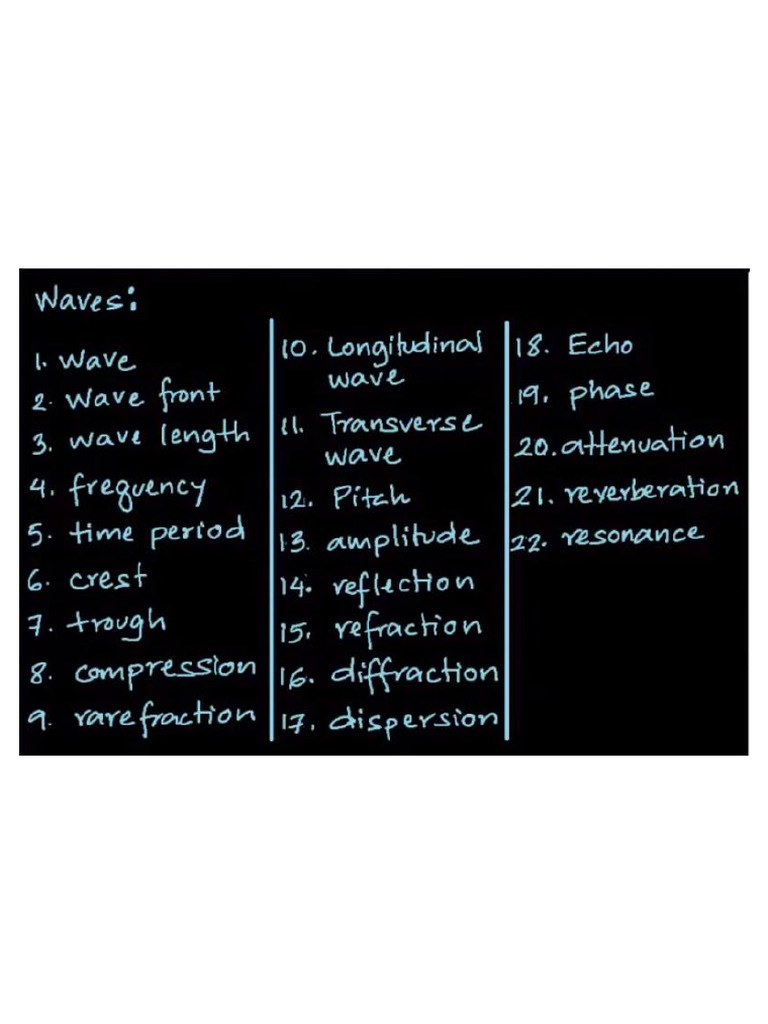 Waves:
1. Wave
2. Wave front
3. wave length
4. frequency
5. time period
6. crest
7. trough
8. compression
9. rarefraction
10. Longitudinal
wave
11. Transverse
wave
12. Pitch
13. amplitude
14. reflection
15. refraction
16. diffraction
17. dispersion
18. Echo
19. phase
20. attenuation
21. reverberation
22. resonance